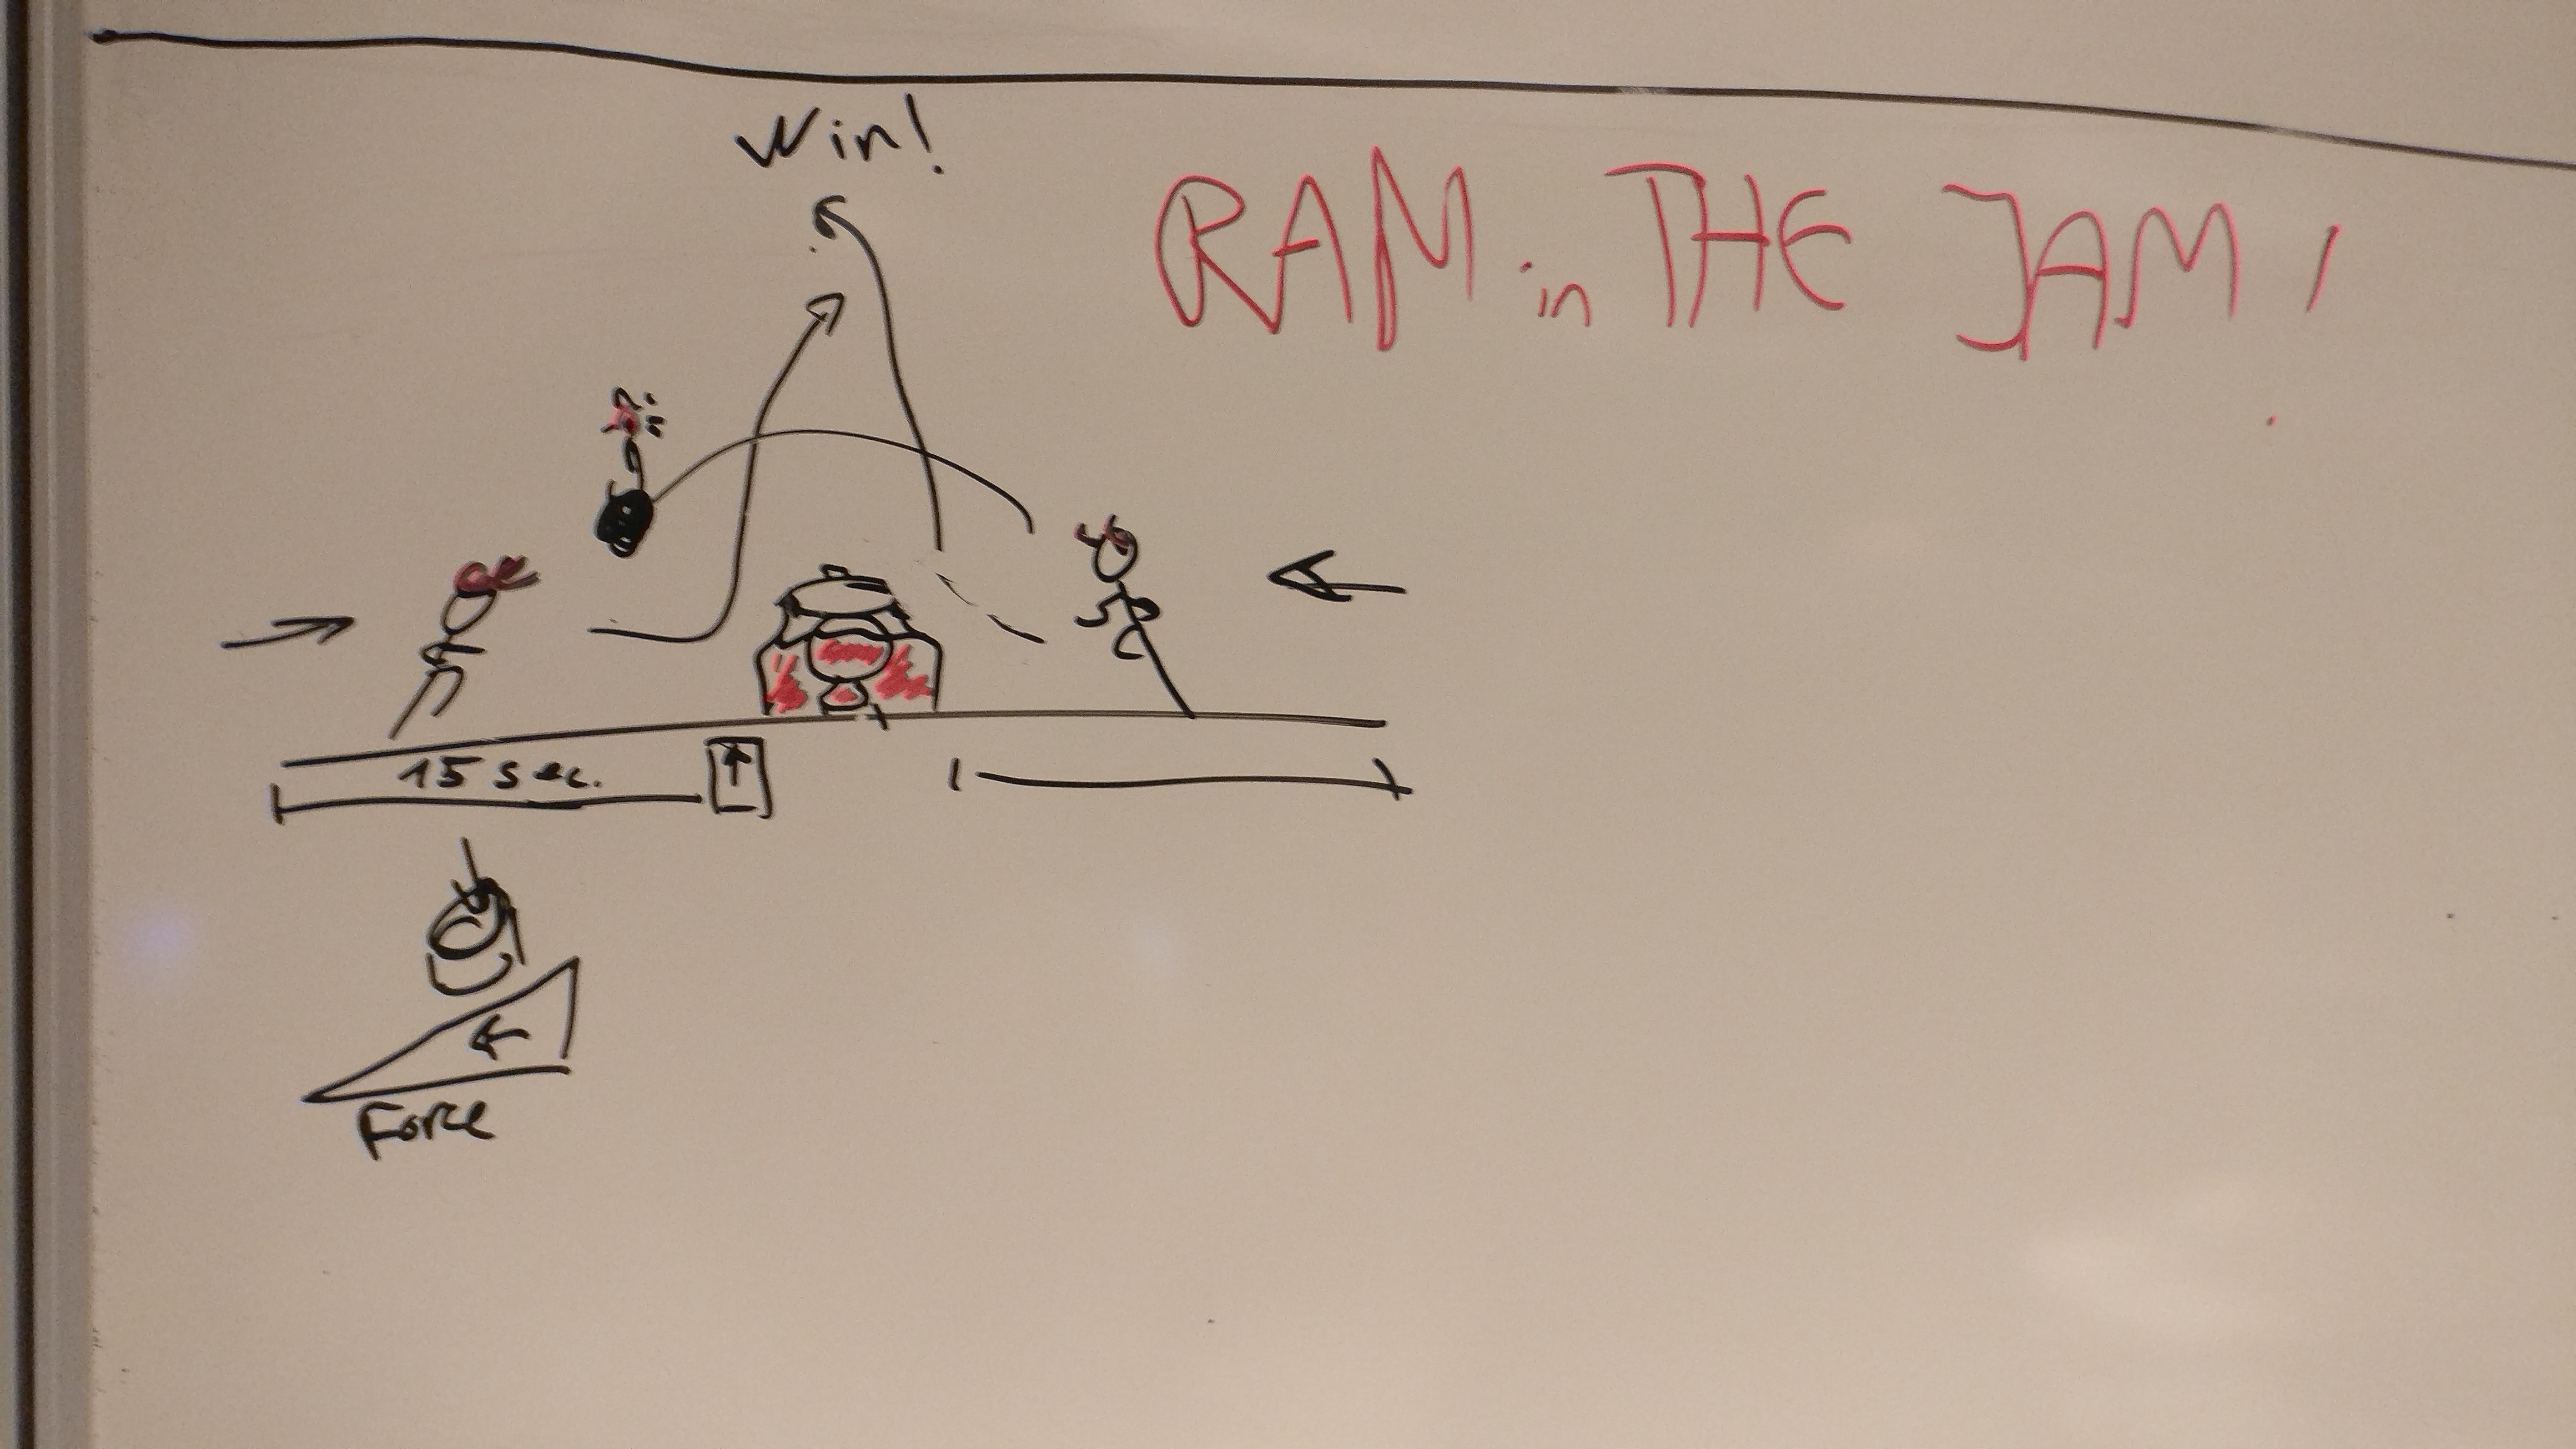 Win!
RAM in THE JAM!
15 sec.
Force